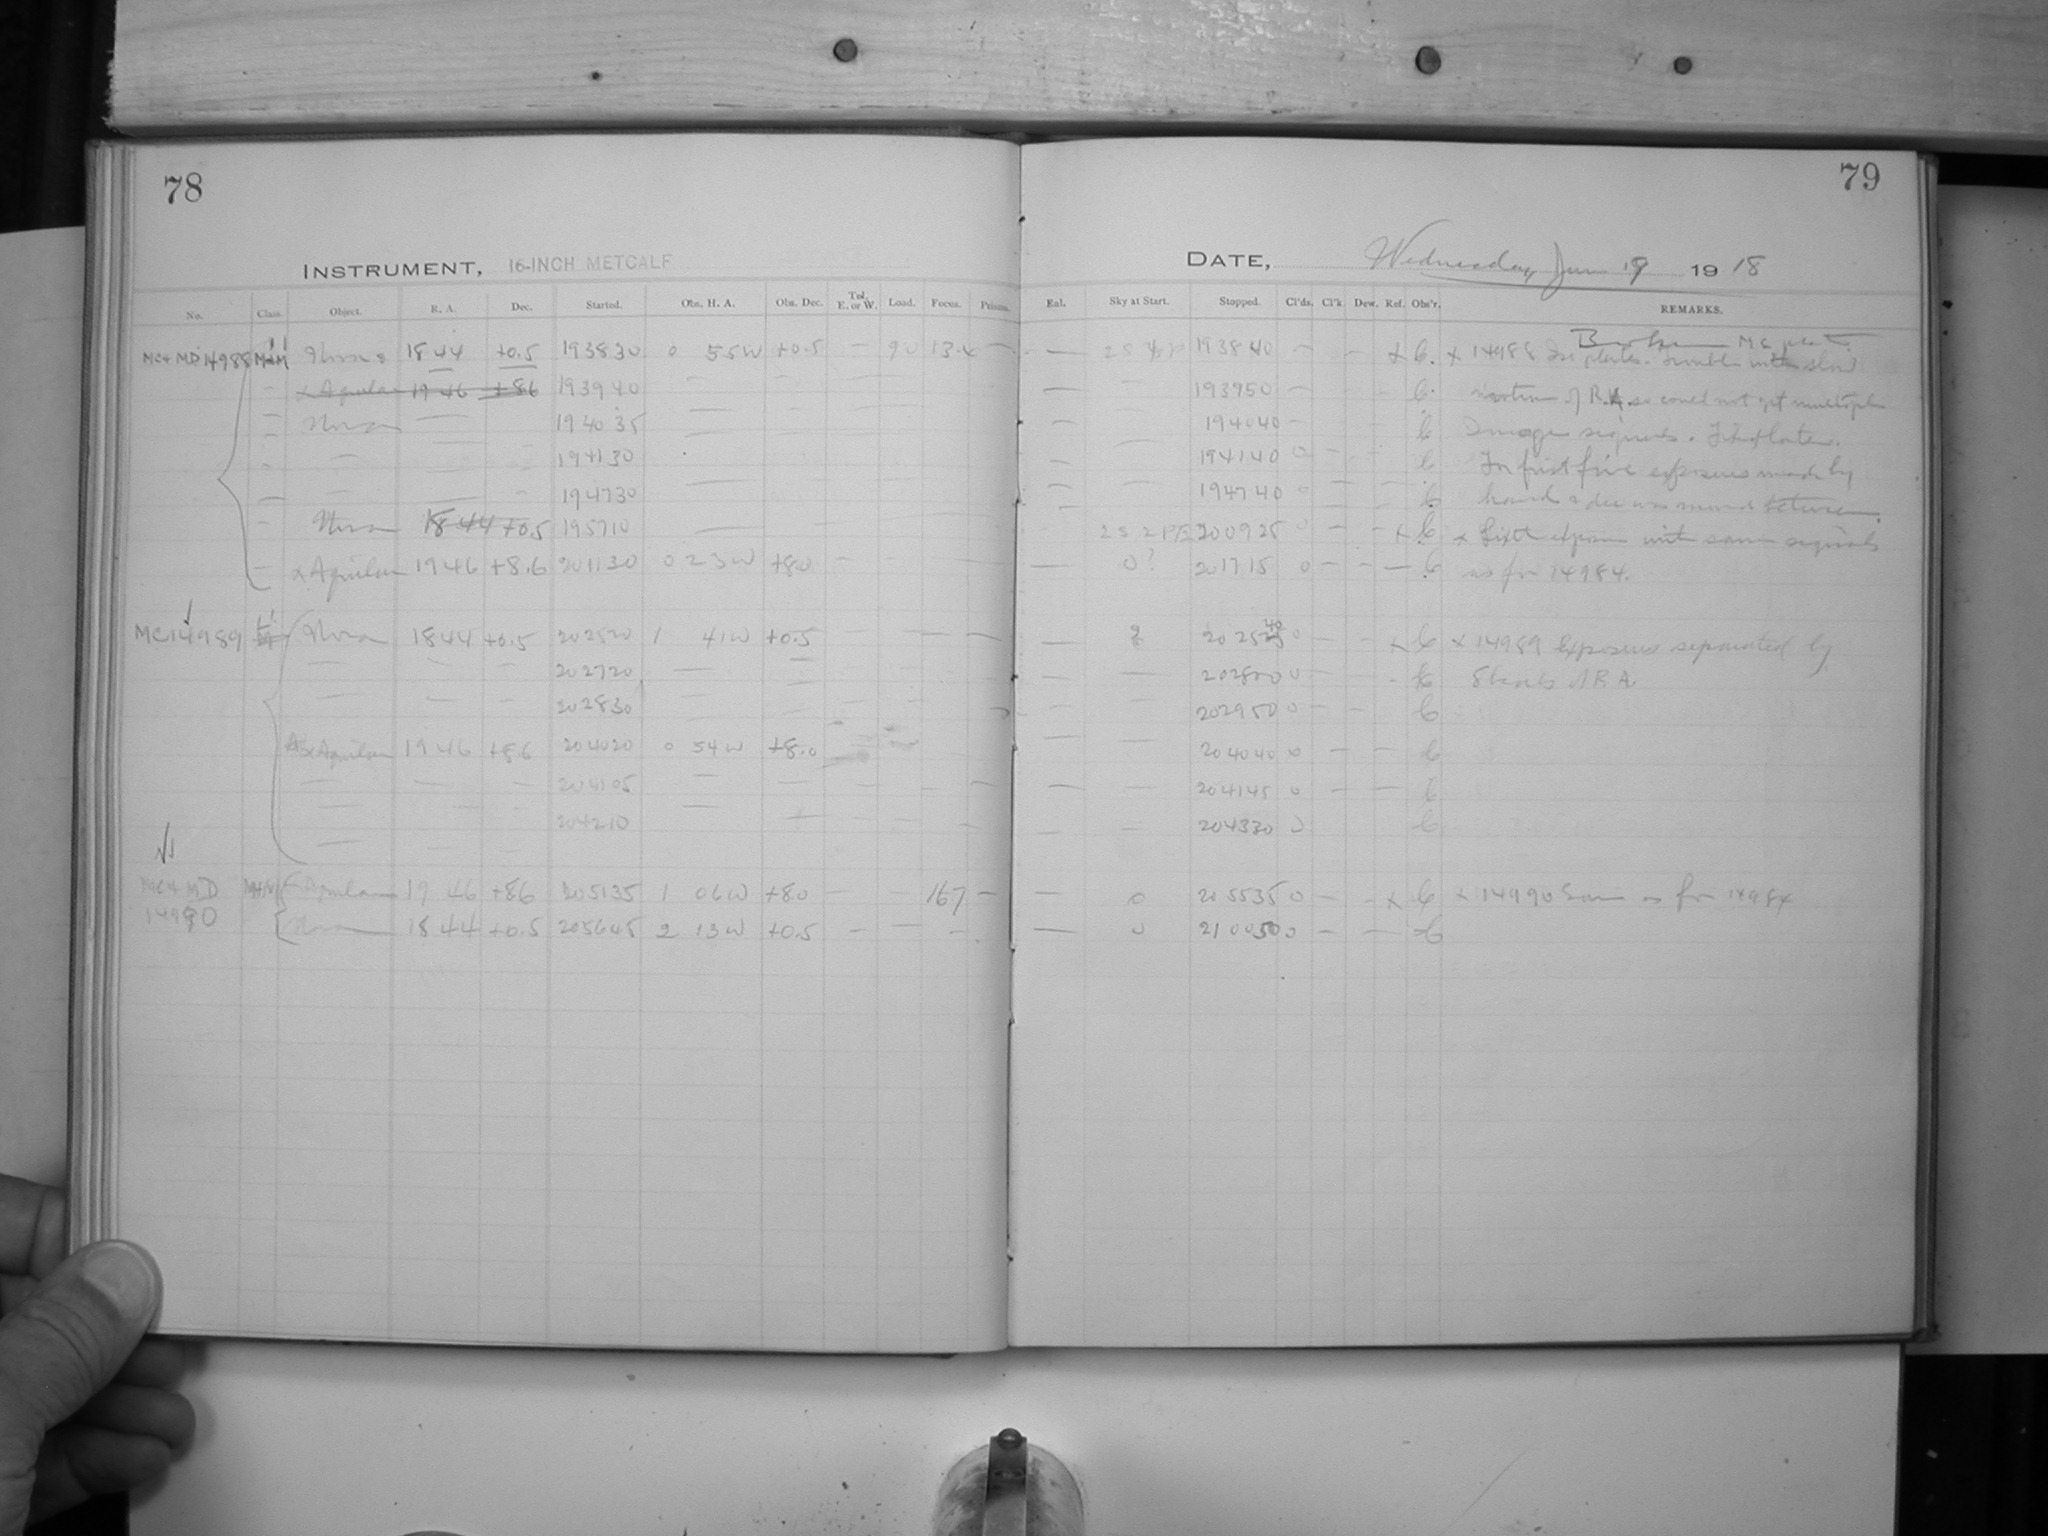 78
INSTRUMENT, 16-INCH METCALF
No. Class. Object. R. A. Dec. Started. Obs. H. A. Obs. Dec. Tel. E. or W. Load. Focus. Prisms.
MC+MD 14988 Nova 1844 +0.5 193830 0 55W +0.5 — 90 13.4 —
Aquilae 1946 +86 193940
Nova 194035
194130
194730
Nova 1844 +0.5 195710
Aquilae 1946 +8.6 201130 0 23W +80 —
MC14989 Nova 1844 +0.5 202520 1 41W +0.5
202720
202830
Aquilae 1946 +86 204020 0 54W +8.0
204105
204210
MC+MD Aquilae 1946 +86 205135 1 06W +80 — — 16.7 —
14990 Nova 1844 +0.5 205645 2 13W +0.5 — — —
79
DATE, Wednesday, June 19 1918
Eal. Sky at Start. Stopped. Cl'ds. Cl'k. Dew. Ref. Obs'r. REMARKS.
Broken MC plate.
— 193840 — — x C. x 14988 plates. Trouble with slow
— — 193950 — C. motion of R.A. so could not get multiple
— 194040 — C Image
— — 194140 0 — — C For first five exposures made by
— — 194740 0 C hand & dec was moved between.
200925 0 — — x C x Sixth exposure with same
— 0? 201715 0 — — — C as for 14984.
— 2 202540 0 — — x C x 14989 Exposures separated by
— — 202800 0 C of R.A.
— — 202950 0 — — C
— — 204040 0 — — C
— — 204145 0 — — C
— — 204330 0 C
— 0 205535 0 — — x C x 14990 Same as for 14984
— 0 210050 0 — — C